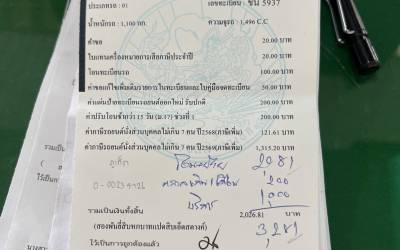 ประเภทรถ : 01 เลขทะเบียน : ขน 5937
น้ำหนักรถ : 1,100 กก. ความจุรถ : 1,496 C.C
ค่าขอ 20.00 บาท
ใบแทนเครื่องหมายการเสียภาษีประจำปี 20.00 บาท
โอนทะเบียนรถ 100.00 บาท
ค่าขอแก้ไขเพิ่มเติมรายการในทะเบียนและใบคู่มือจดทะเบียน 50.00 บาท
ค่าแผ่นป้ายทะเบียนรถยนต์ออกใหม่ รับปกติ 200.00 บาท
ค่าปรับโอนช้ากว่า 15 วัน (ม.17) ช่วงที่ 1 200.00 บาท
ค่าภาษีรถยนต์นั่งส่วนบุคคลไม่เกิน 7 คน ปี2568(ภาษีเพิ่ม) 121.61 บาท
ค่าภาษีรถยนต์นั่งส่วนบุคคลไม่เกิน 7 คน ปี2569(ภาษีเพิ่ม) 1,315.20 บาท
ภูเก็ต 2,081
200
บริการ 1,000
รวมเป็นเงินทั้งสิ้น 2,026.81 บาท
(สองพันยี่สิบหกบาทแปดสิบเอ็ดสตางค์) 3,281
ไว้เป็นการถูกต้องแล้ว
รวมเป็นเงิน
ไว้เป็นการ